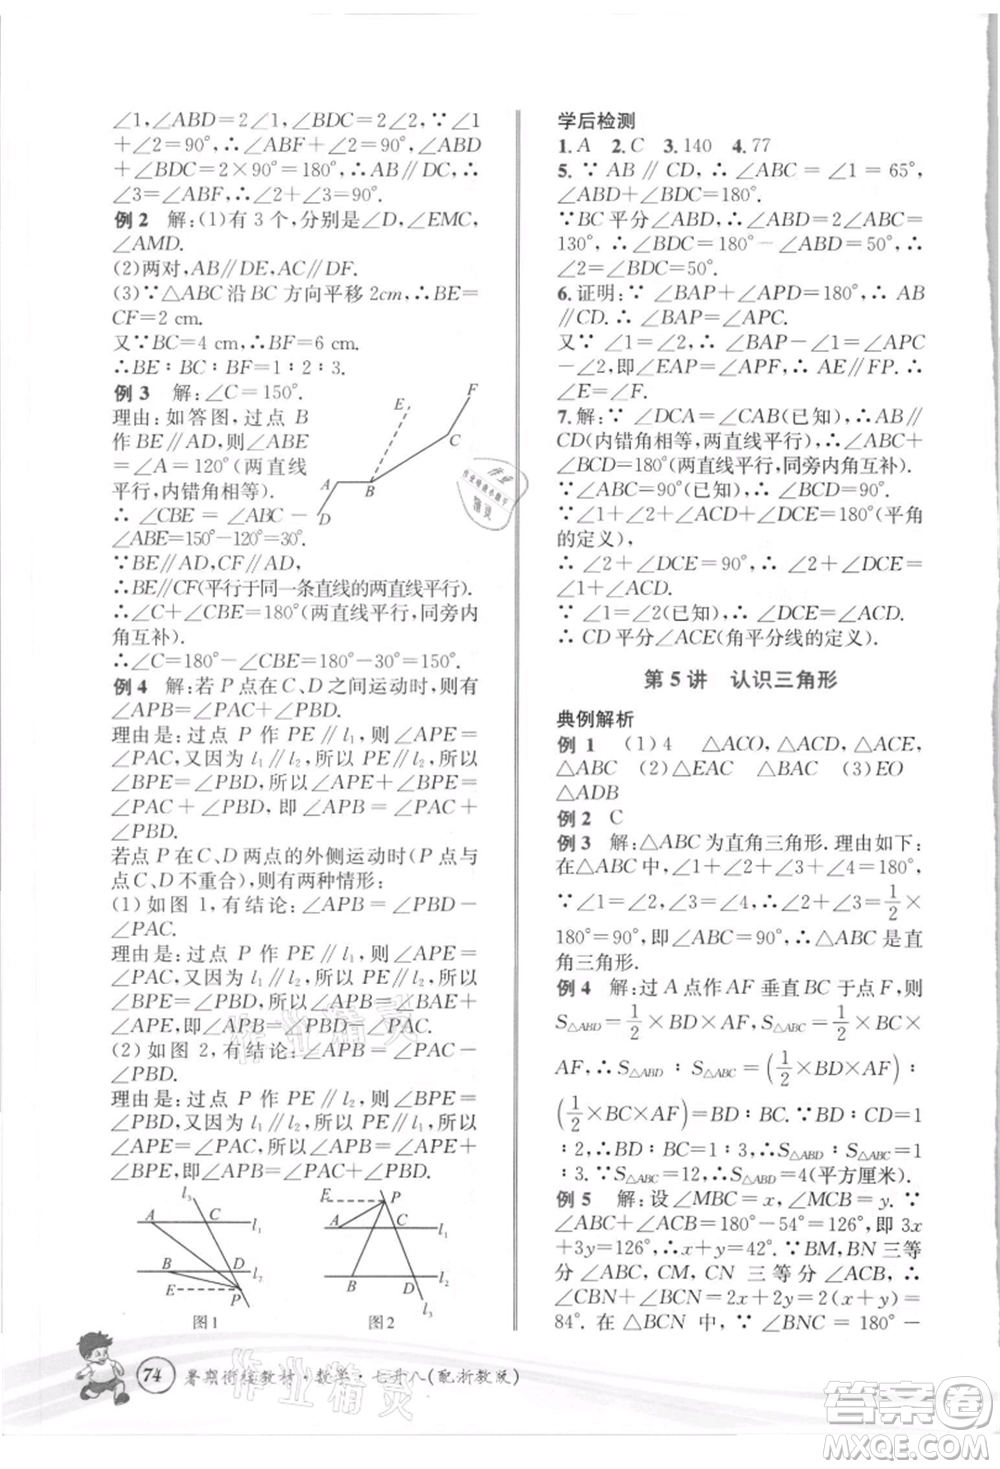 ∠1,∠ABD=2∠1,∠BDC=2∠2,∵∠1
+∠2=90°,∴∠ABF+∠2=90°,∠ABD+
∠BDC=2×90°=180°,∴AB∥CD,∴
∠3=∠ABF,∴∠2+∠3=90°.
例2 解:(1)有3个,分别是∠D,∠EMC,
∠AMD.
(2)两对,AB∥DE,AC∥DF.
(3)∵△ABC沿BC方向平移2cm,∴BE=
CF=2 cm.
又∵BC=4 cm,∴BF=6 cm.
∴BE∶BC∶BF=1∶2∶3.
例3 解:∠C=150°.
理由:如答图,过点B
作BE∥AD,则∠ABE
=∠A=120°(两直线
平行,内错角相等).
∴∠CBE=∠ABC-
∠ABE=150°-120°=30°.
∵BE∥AD,CF∥AD,
∴BE∥CF(平行于同一条直线的两直线平行).
∴∠C+∠CBE=180°(两直线平行,同旁内
角互补).
∴∠C=180°-∠CBE=180°-30°=150°.
F
E
C
A
B
D
例4 解:若P点在C、D之间运动时,则有
∠APB=∠PAC+∠PBD.
理由是:过点P作PE∥l₁,则∠APE=
∠PAC,又因为l₁∥l₂,所以PE∥l₂,所以
∠BPE=∠PBD,所以∠APE+∠BPE=
∠PAC+∠PBD,即∠APB=∠PAC+
∠PBD.
若点P在C、D两点的外侧运动时(P点与
点C、D不重合),则有两种情形:
(1)如图1,有结论:∠APB=∠PBD-
∠PAC.
理由是:过点P作PE∥l₁,则∠APE=
∠PAC,又因为l₁∥l₂,所以PE∥l₂,所以
∠BPE=∠PBD,所以∠APB=∠BAE+
∠APE,即∠APB=∠PBD-∠PAC.
(2)如图2,有结论:∠APB=∠PAC-
∠PBD.
理由是:过点P作PE∥l₂,则∠BPE=
∠PBD,又因为l₁∥l₂,所以PE∥l₁,所以
∠APE=∠PAC,所以∠APB=∠APE+
∠BPE,即∠APB=∠PAC+∠PBD.
l₃
A
C
l₁
B
D
l₂
E
P
图1
l₃
E
P
A
C
l₁
B
D
l₂
图2
74 暑期衔接教材·数学·七升八(配浙教版)
学后检测
1.A 2.C 3.140 4.77
5.∵AB∥CD,∴∠ABC=∠1=65°,
∠ABD+∠BDC=180°.
∵BC平分∠ABD,∴∠ABD=2∠ABC=
130°,∴∠BDC=180°-∠ABD=50°,∴
∠2=∠BDC=50°.
6.证明:∵∠BAP+∠APD=180°,∴AB
∥CD.∴∠BAP=∠APC.
又∵∠1=∠2,∴∠BAP-∠1=∠APC
-∠2,即∠EAP=∠APF,∴AE∥FP.∴
∠E=∠F.
7.解:∵∠DCA=∠CAB(已知),∴AB∥
CD(内错角相等,两直线平行),∴∠ABC+
∠BCD=180°(两直线平行,同旁内角互补).
∵∠ABC+∠2=90°(已知),∴∠2+∠ACD=90°.
∵∠1+∠2+∠ACD+∠DCE=180°(平角
的定义),∴∠2+∠DCE=90°.
∵∠1=∠2(已知),∴∠DCE=∠ACD.
∴CD平分∠ACE(角平分线的定义).
第5讲 认识三角形
典例解析
例1 (1)4 △ACO,△ACD,△ACE,
△ABC (2)△EAC △BAC (3)EO
△ADB
例2 C
例3 解:△ABC为直角三角形.理由如下:
在△ABC中,∠1+∠2+∠3+∠4=180°,
∵∠1=∠2,∠3=∠4,∴∠2+∠3=1/2×
180°=90°,即∠ABC=90°,∴△ABC是直
角三角形.
例4 解:过A点作AF垂直BC于点F,则
S△ABD=1/2×BD×AF,S△ABC=1/2×BC×
AF,∴S△ABD∶S△ABC=(1/2×BD×AF)∶
(1/2×BC×AF)=BD∶BC.∵BD∶CD=1
∶2,∴BD∶BC=1∶3,∴S△ABD∶S△ABC=1
∶3.∵S△ABC=12,∴S△ABD=4(平方厘米).
例5 解:设∠MBC=x,∠MCB=y.∵
∠ABC+∠ACB=180°-54°=126°,即3x
+3y=126°,∴x+y=42°.∵BM,BN三等
分∠ABC,CM,CN三等分∠ACB,∴
∠CBN+∠BCN=2x+2y=2(x+y)=
84°.∴∠BNC=180°-84°=96°.
作业精灵
作业精灵
答案圈
MXQE.COM